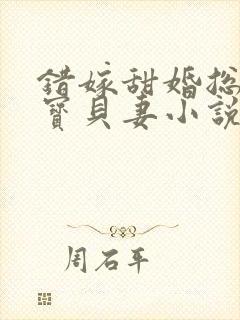 錯嫁甜婚総
寶貝妻小說
周石平